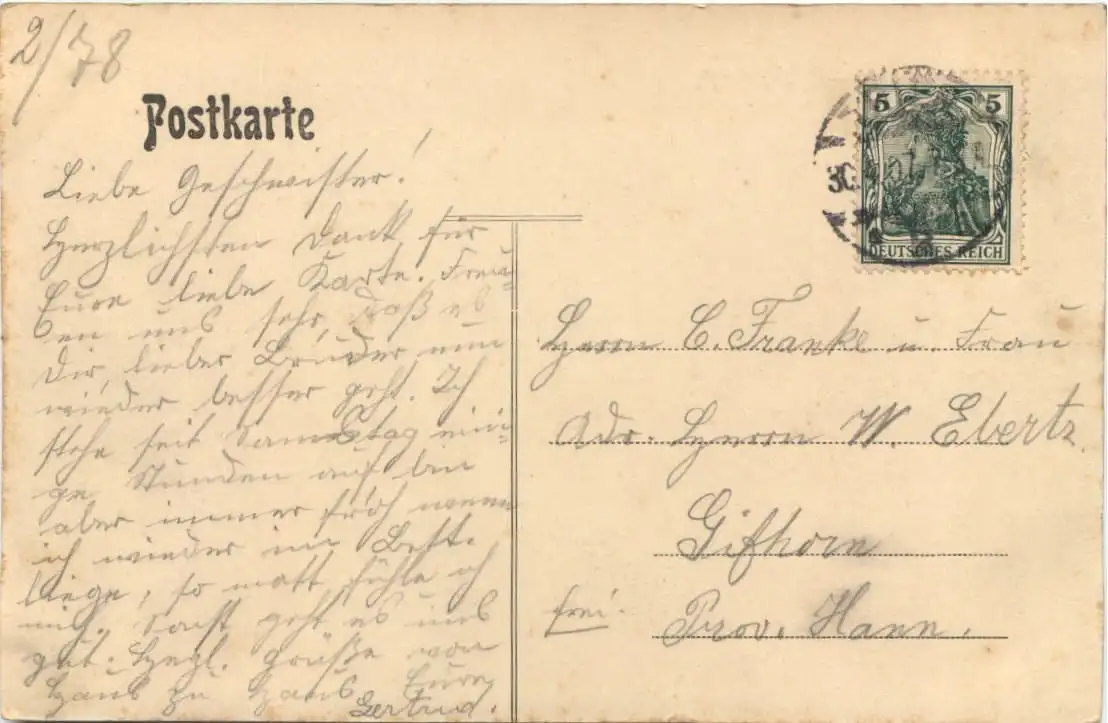 2/78
Postkarte
Liebe Geschwister!
Herzlichsten Dank für
Eure liebe Karte. Freu-
en uns sehr, daß es
Dir, lieber Bruder nun
wieder besser geht. Ich
stehe seit Samstag eini-
ge Stunden auf bin
aber immer froh wenn
ich wieder im Bett
liege, so matt fühle ich
mich. Sonst geht es uns
gut. Hrzl. Grüße von
Haus zu Haus Eure
Gertrud.
5 5
DEUTSCHES REICH
30
Herrn C. Franke u. Frau
Adr. Herrn W. Ebertz
Gifhorn
frei.
Prov. Hann.